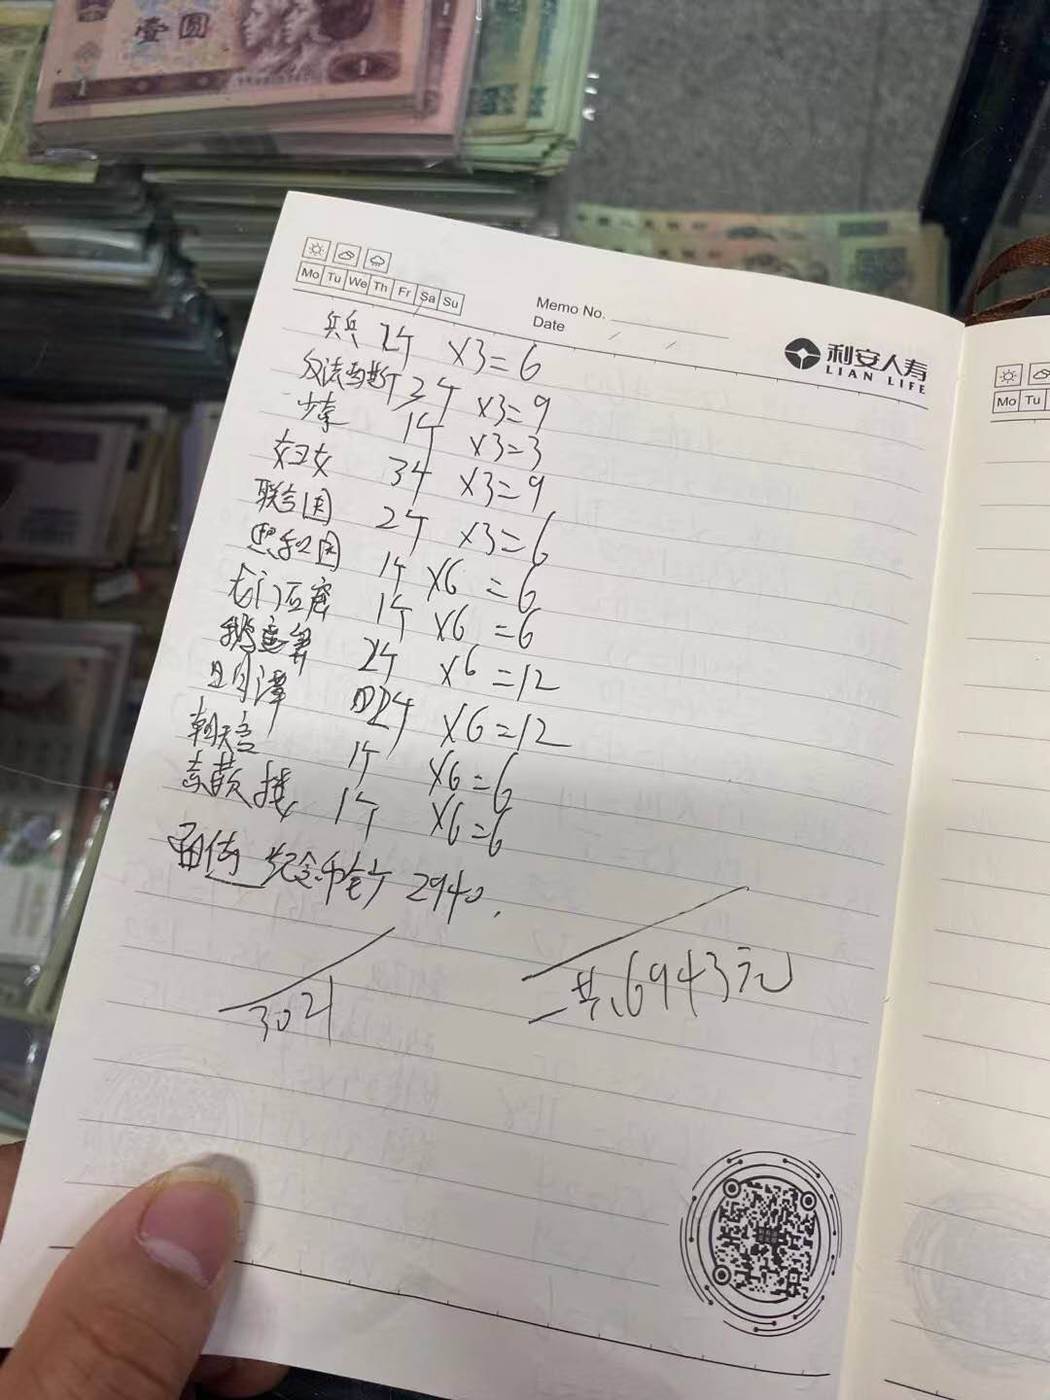 壹圆
1
Mo Tu We Th Fr Sa Su
Memo No.
Date
利安人寿
LIAN LIFE
Mo Tu
乒乓 2个 ×3=6
反法西斯 3个 ×3=9
少革 1个 ×3=3
妇女 3个 ×3=9
联合国 2个 ×3=6
颐和园 1个 ×6=6
龙门石窟 1个 ×6=6
2个 ×6=12
日月潭 2个 ×6=12
朝天宫 1个 ×6=6
赤嵌楼 1个 ×6=6
纪念币 2940.
3021
共6943元